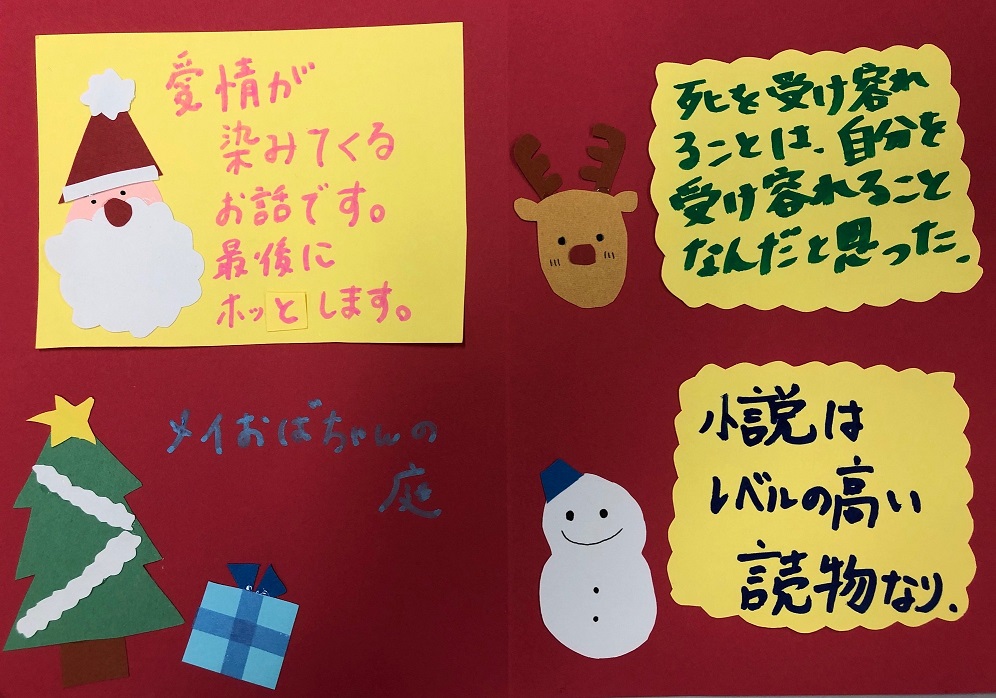 愛情が
染みてくる
お話です。
最後に
ホッとします。
メイおばちゃんの
庭
死を受け容れ
ることは、自分を
受け容れること
なんだと思った.
小説は
レベルの高い
読物なり.